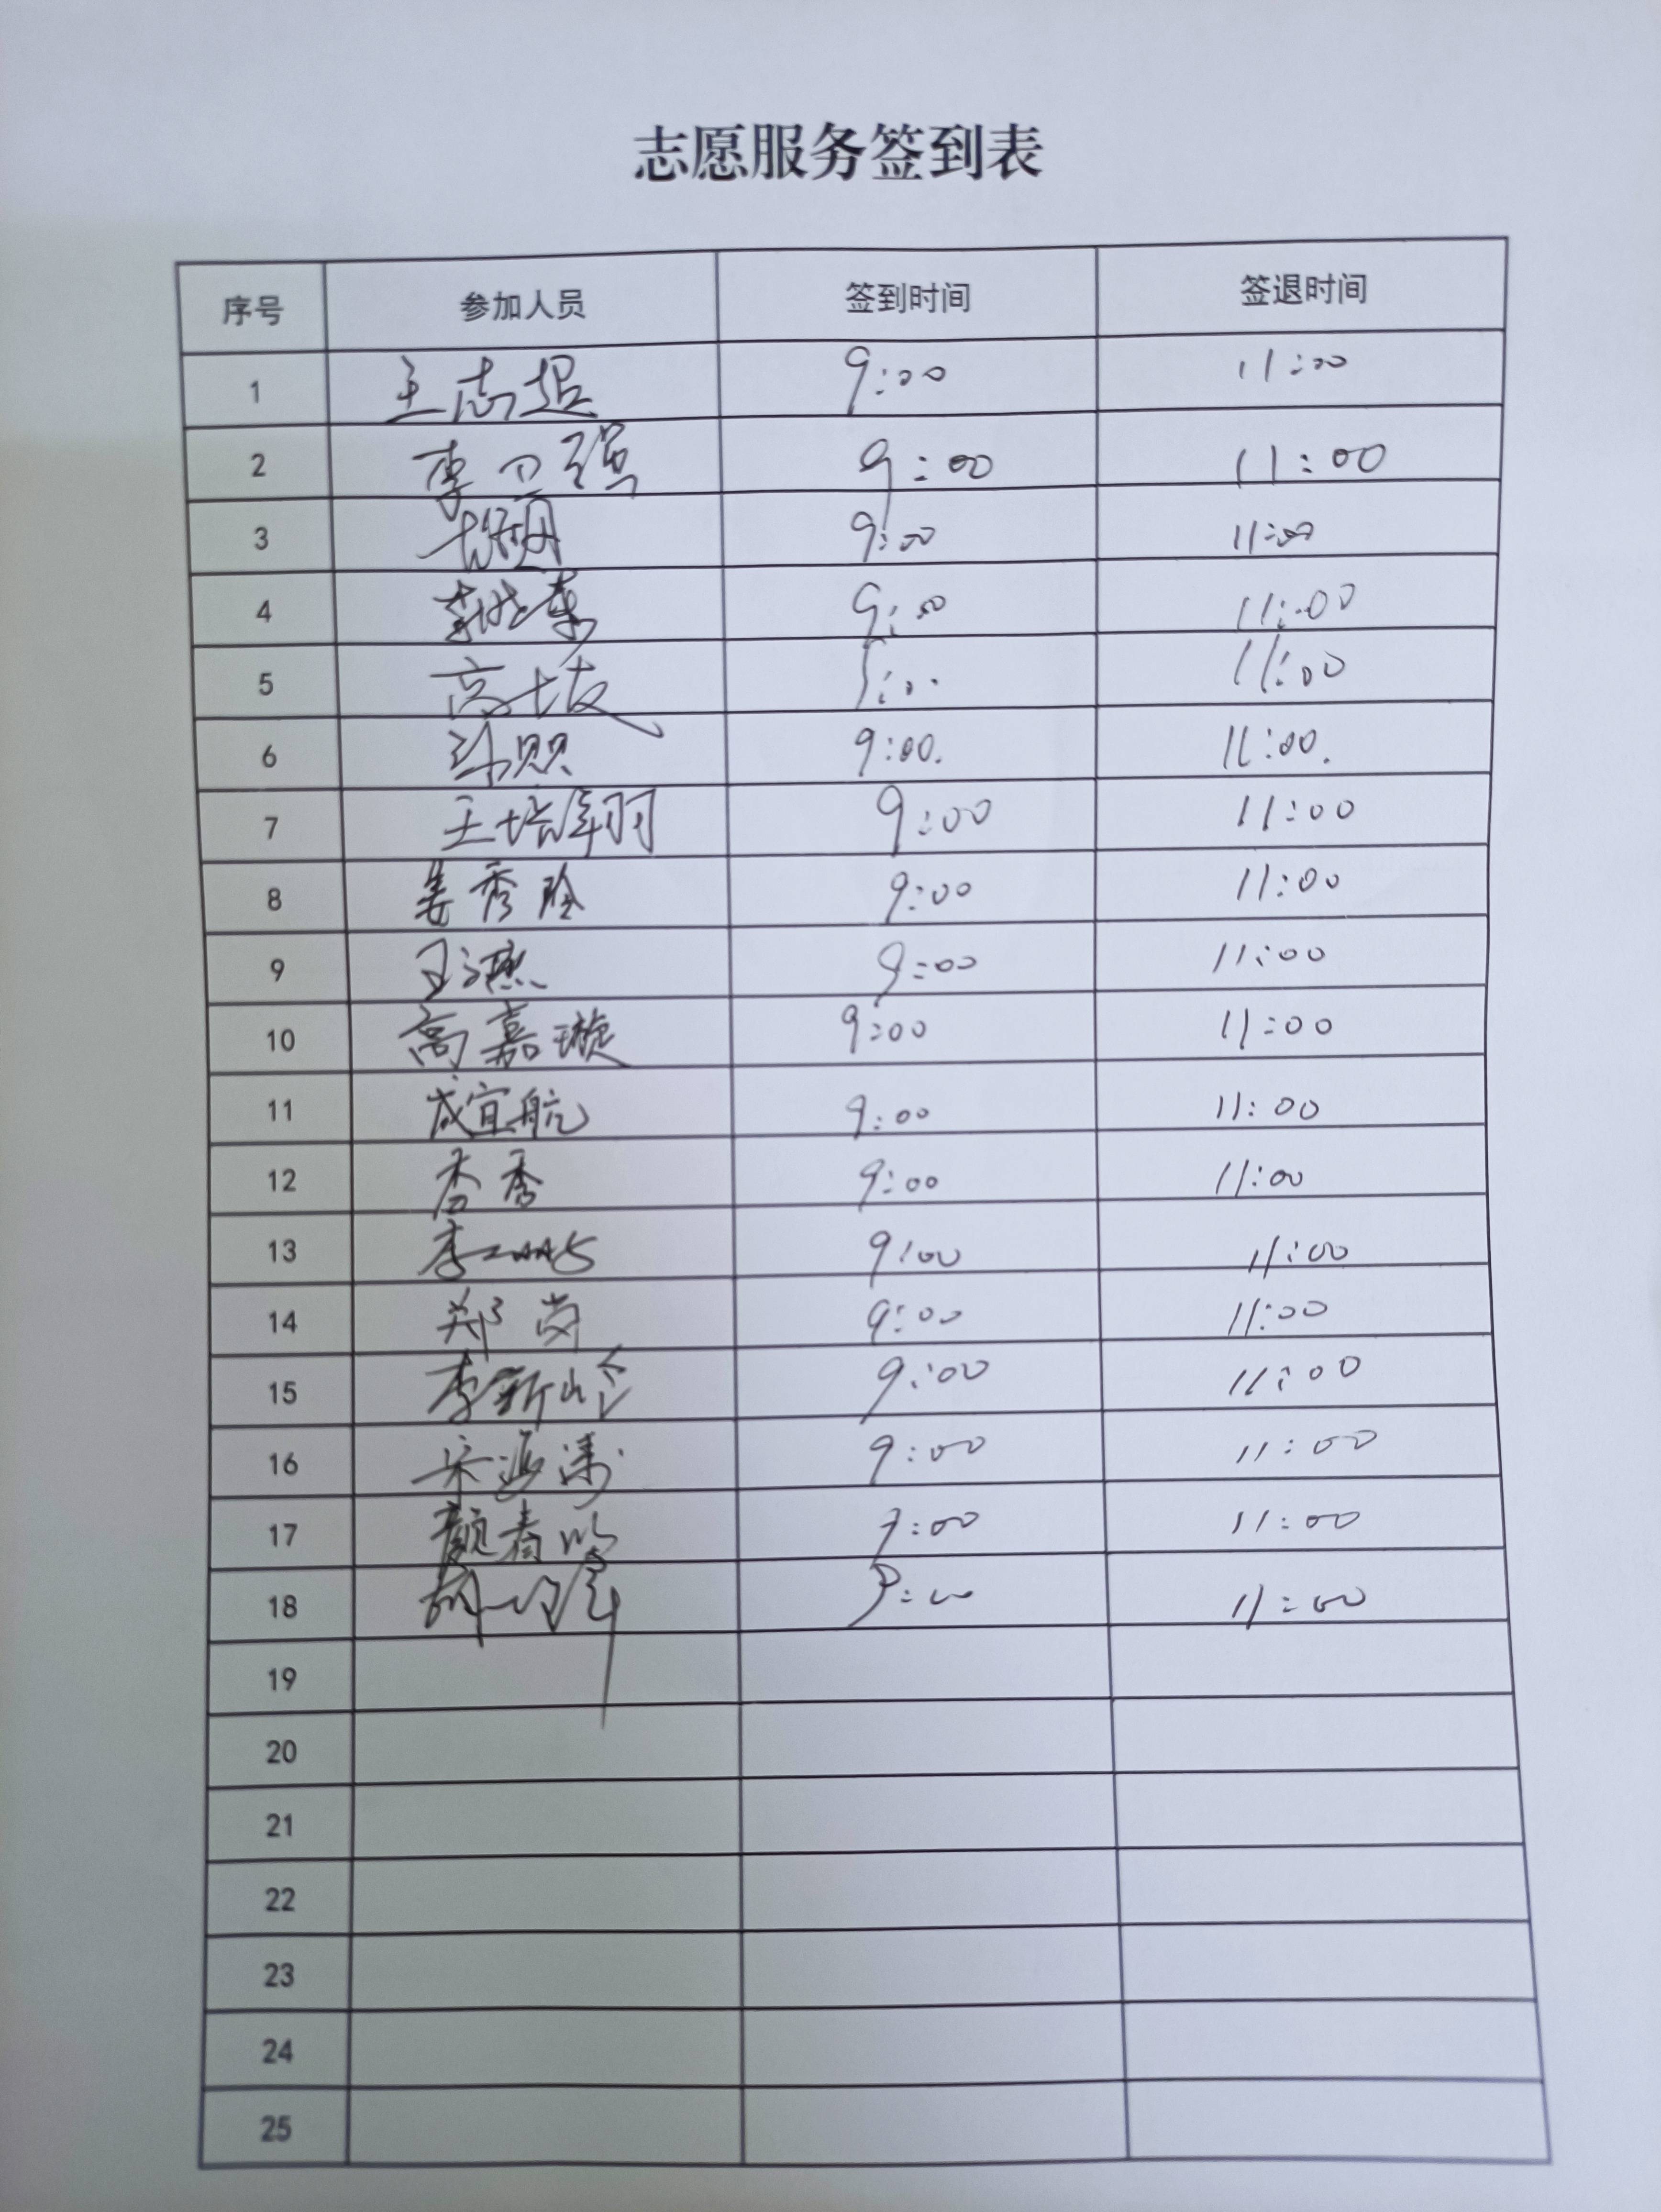 志愿服务签到表
序号 参加人员 签到时间 签退时间
1 王志超 9:00 11:00
2 李卫强 9:00 11:00
3 9:00 11:00
4 9:00 11:00
5 高士友 11:00
6 9:00. 11:00.
7 王培 羽 9:00 11:00
8 姜秀玲 9:00 11:00
9 王 9:00 11:00
10 高嘉璇 9:00 11:00
11 成宜航 9:00 11:00
12 杏秀 9:00 11:00
13 李 9:00 11:00
14 郑岗 9:00 11:00
15 李新岭 9:00 11:00
16 宋海涛 9:00 11:00
17 颜春 9:00 11:00
18 胡 9:00 11:00
19
20
21
22
23
24
25